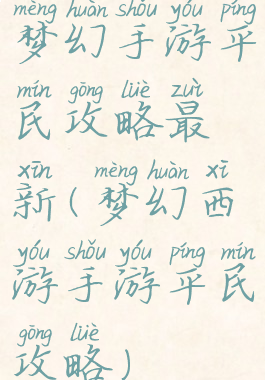 mèng huàn shǒu yóu píng
梦幻手游平
mín gōng lüè zuì
民攻略最
xīn mèng huàn xī
新(梦幻西
yóu shǒu yóu píng mín
游手游平民
gōng lüè
攻略)